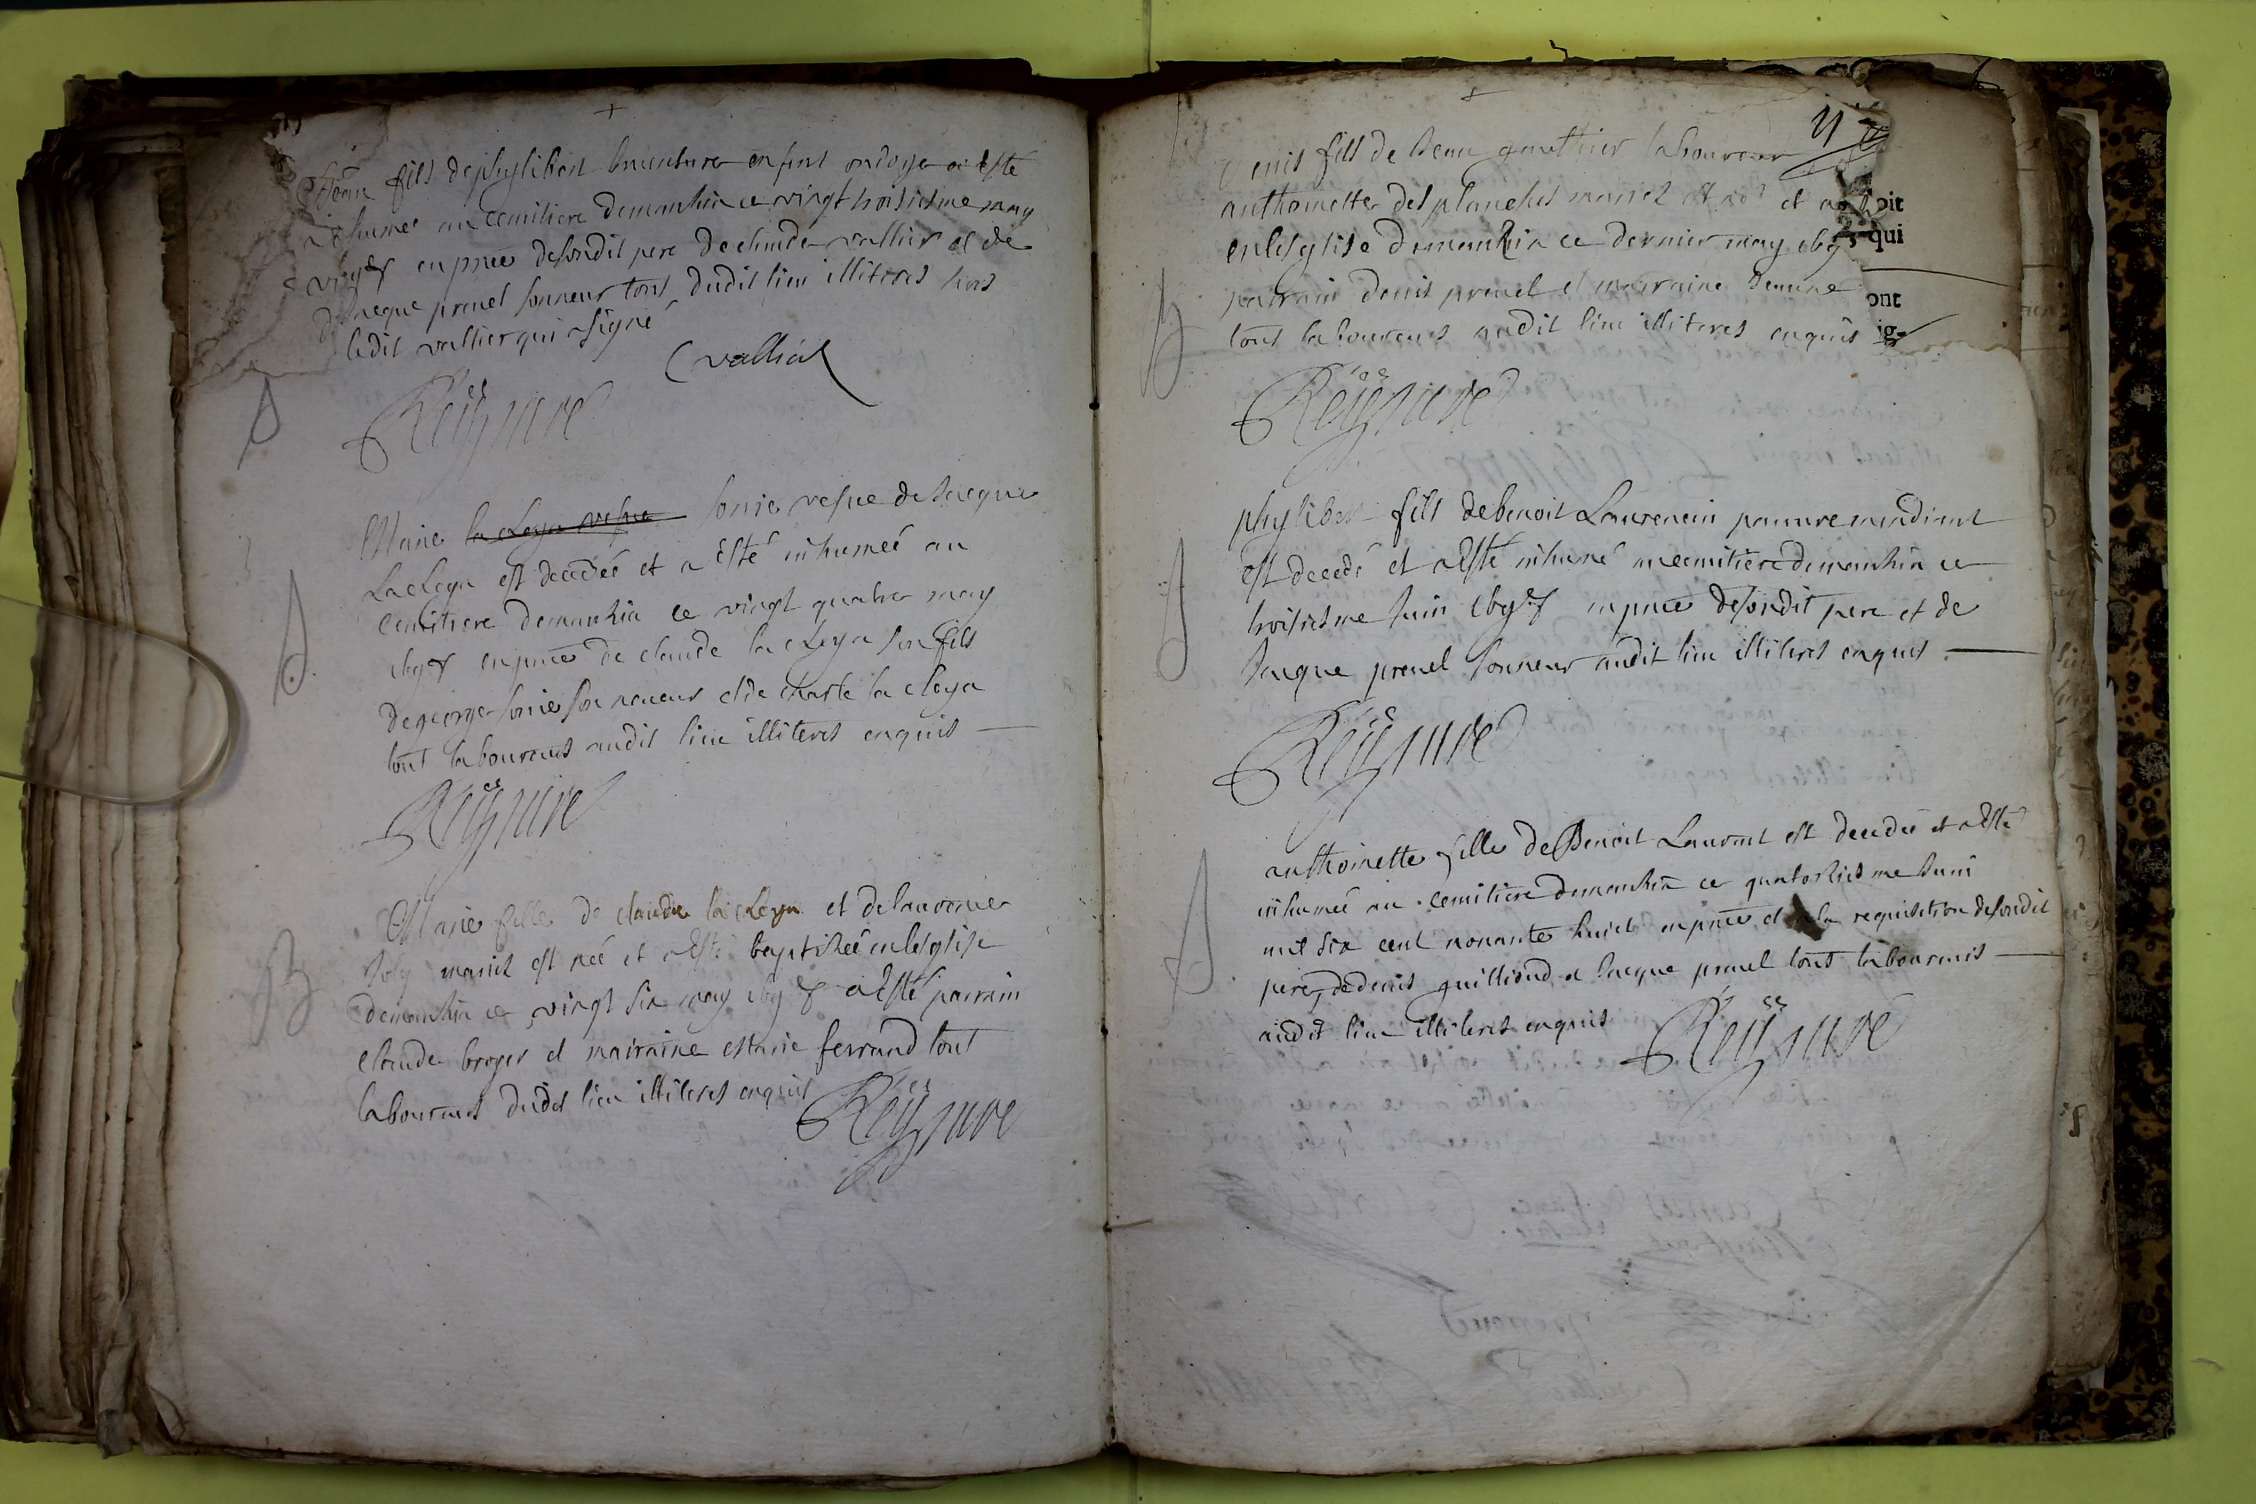 Jean fils de phylibert enfant ondoyé a esté
inhumé au cemitiere de manhia ce vingt troisiesme may
en pnce desondit pere de claude vallier et de
Jacque prevel sonneur tous dudit lieu illiteres hors
ledit vallier qui a signé
C vallier
Reÿssure
Marie la cleya vefve sonie vefve de Jacque
La cleya est decedée et a esté inhumée au
cemitiere de manhia ce vingt quatre may
en pnce de claude la cleya son fils
de george sonie son neveur et de charle la cleya
tout laboureurs audit lieu illiteres enquis
Reÿssure
Marie fille de claude la cleya et de laurence
Joly mariez est née et a esté baptisée en lesglise
de manhia ce vingt six may a esté parrain
claude broyer et mairaine estiane ferrand tout
laboureurs dudit lieu illiteres enquis
Reÿssure
Denis fils de Jean gauthier laboureur
anthoinette des planches mariez est né et
en lesglise de manhia ce dernier may
parrain denis prevel et mairaine
tout laboureurs audit lieu illiteres enquis
oit
qui
ont
ig-
Reÿssure
phylibert fils de benoit Laurencin pauvre mendiant
est decedé et a esté inhumé au cemitiere de manhia ce
troisiesme Juin en pnce desondit pere et de
Jacque prevel sonneur audit lieu illiteres enquis
Reÿssure
anthoinette fille de Benoit Laurent est decedée et a esté
inhumée au cemitiere de manhia ce quatorsiesme Juin
mil six cent nonante huict en pnce et a la requisition desondit
pere, de denis guillioud et Jacque prevel tout laboureurs
audit lieu illiteres enquis
Reÿssure